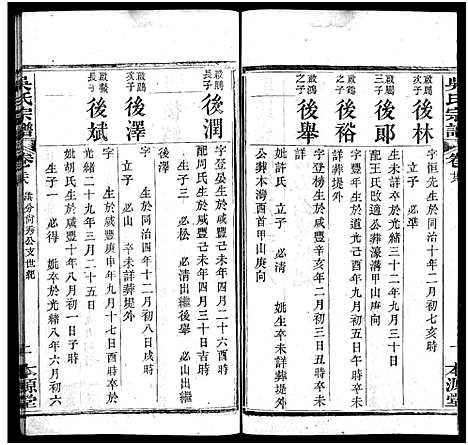 吳氏宗譜
卷末
啟鵬三子
後林
字恒先生於同治十年二月初七亥時
生未詳卒於光緒三十二年九月三十日
立子 必準
啟鵬之子
後郎
配王氏改適公葬濠溝甲山庚向
啟鴻之子
後裕
字登生於道光二年六月初二日卒未
詳葬堤外
後舉
字登榜生於咸豐辛亥年二月初三日卯時
妣許氏 立子 必清 妣生卒未詳葬堤外
公葬本灣酉首甲山庚向
本源堂
啟鵬長子
後潤
字登晏生於咸豐己未年四月二十六酉時
配周氏生於咸豐己未年四月三十日吉時
生子三 必松 必清出繼後舉
啟鵬次子
後澤
生於同治四年十二月初八日戌時
立子 必山 卒未詳葬堤外
啟騰長子
後斌
生於咸豐庚申年九月十七日酉時卒於
光緒二十九年三月二十五日
妣胡氏生於咸豐十年八月初一日子時
生子一 必得 妣卒於光緒八年六月初六
吳氏宗譜
卷末
洪分尚秀公支世紀
本源堂